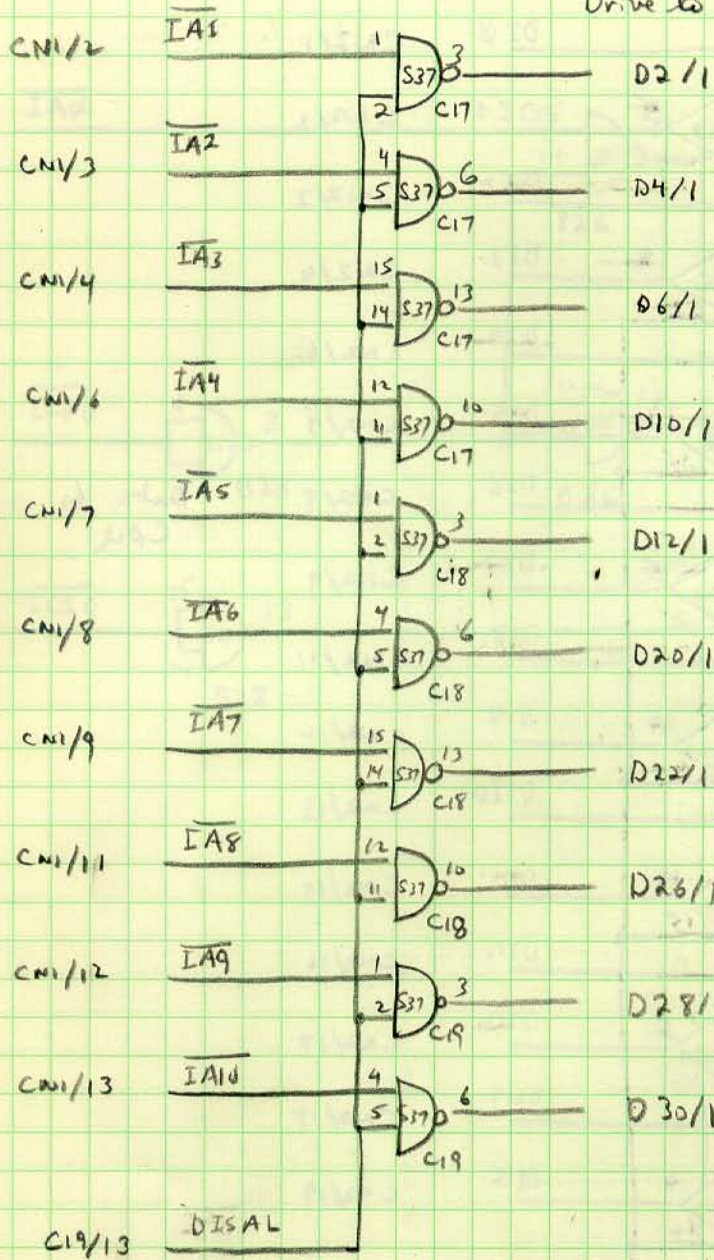 Drive to
CN1/2 I̅A̅1̅ 1 2 S37 3 C17 D2/1
CN1/3 I̅A̅2̅ 4 5 S37 6 C17 D4/1
CN1/4 I̅A̅3̅ 15 14 S37 13 C17 D6/1
CN1/6 I̅A̅4̅ 12 11 S37 10 C17 D10/1
CN1/7 I̅A̅5̅ 1 2 S37 3 C18 D12/1
CN1/8 I̅A̅6̅ 4 5 S37 6 C18 D20/1
CN1/9 I̅A̅7̅ 15 14 S37 13 C18 D22/1
CN1/11 I̅A̅8̅ 12 11 S37 10 C18 D26/1
CN1/12 I̅A̅9̅ 1 2 S37 3 C19 D28/
CN1/13 I̅A̅1̅0̅ 4 5 S37 6 C19 D30/1
C19/13 DISAL